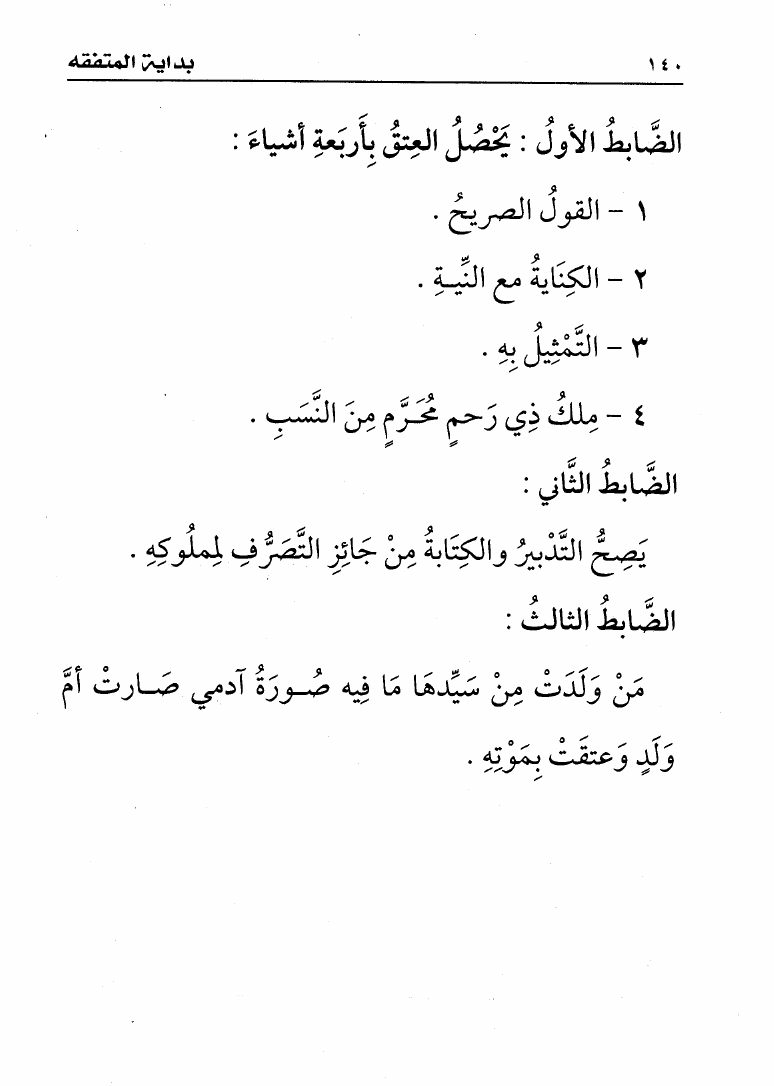 ١٤٠
بداية المتفقه
الضَّابطُ الأولُ : يَحْصُلُ العِتقُ بِأَربَعةِ أشياءَ :
١ - القولُ الصريحُ .
٢ - الكِنَايةُ مع النِّيـةِ .
٣ - التَّمْثِيلُ بِهِ .
٤ - مِلكُ ذِي رَحمٍ مُحَرَّمٍ مِنَ النَّسَبِ .
الضَّابطُ الثَّاني :
يَصِحُّ التَّدْبيرُ والكِتَابةُ مِنْ جَائِزِ التَّصَرُّفِ لِمملُوكِهِ .
الضَّابطُ الثالثُ :
مَنْ وَلَدَتْ مِنْ سَيِّدهَا مَا فِيه صُـورَةُ آدمي صَـارتْ أمَّ
وَلَدٍ وَعتقَتْ بِمَوْتِهِ .